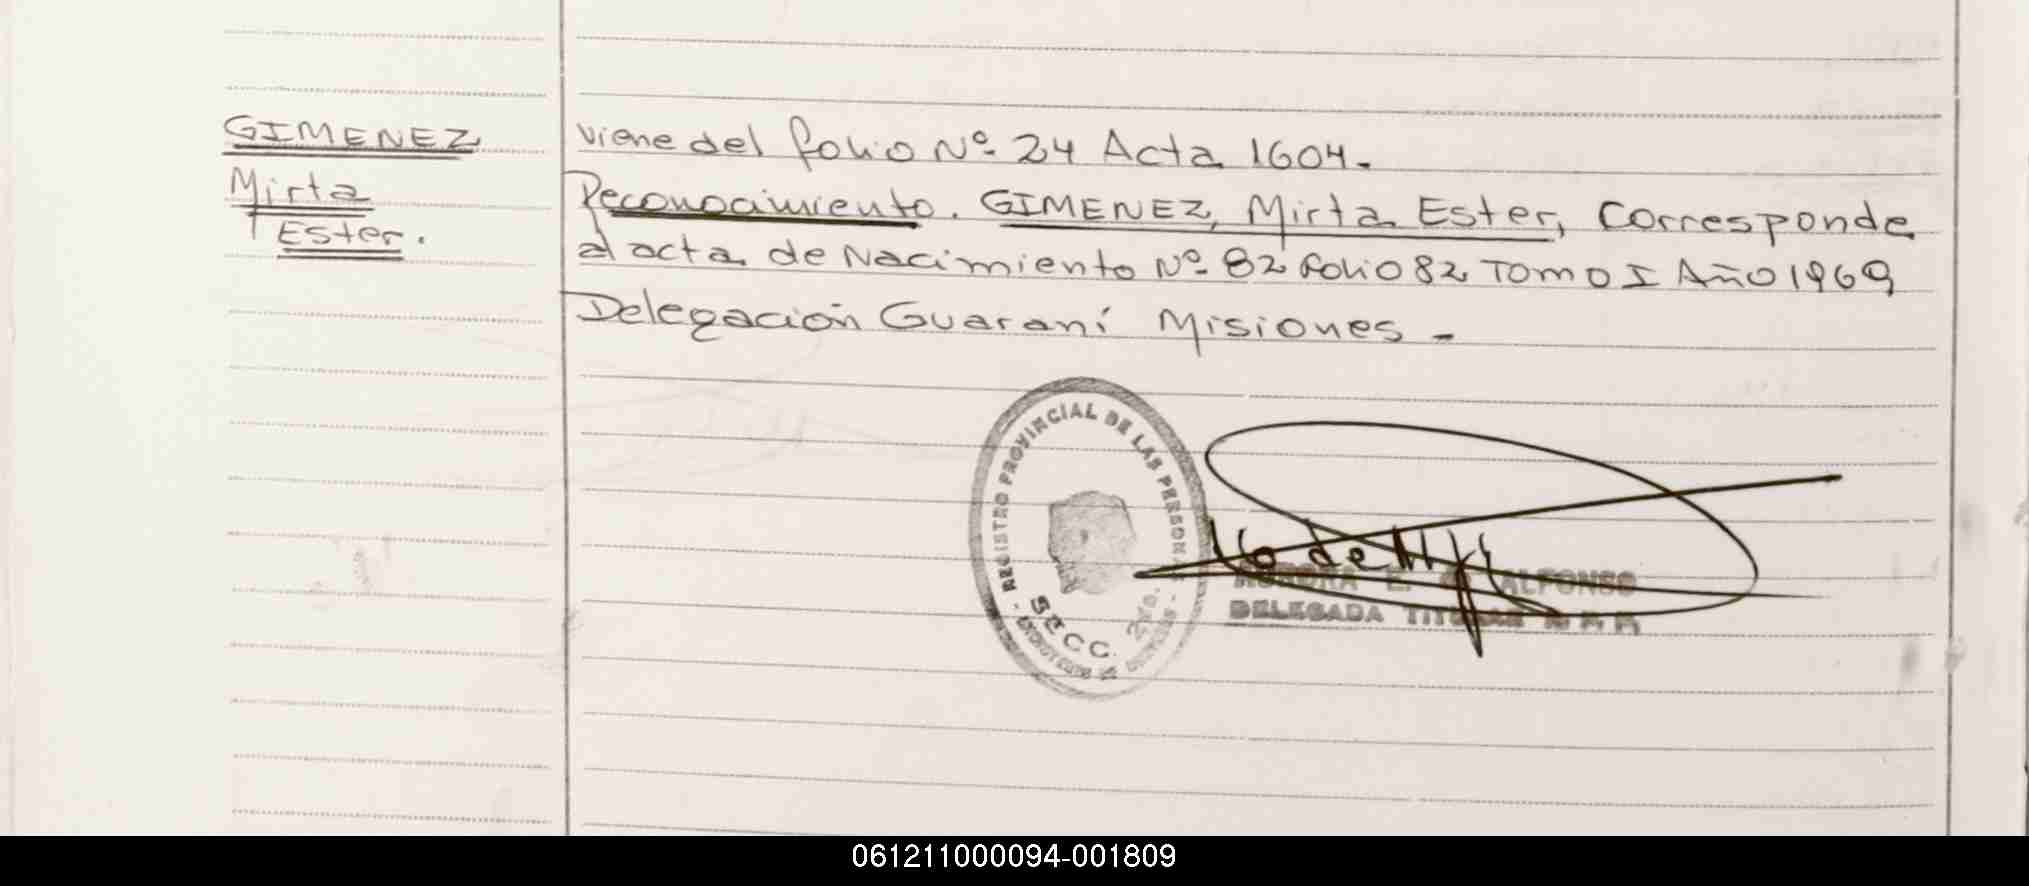 GIMENEZ
Mirta
Ester.
viene del folio Nº 24 Acta 1604.
Reconocimiento. GIMENEZ, Mirta Ester, Corresponde
al acta de Nacimiento Nº 82 folio 82 Tomo I Año 1969
Delegación Guaraní Misiones -
REGISTRO PROVINCIAL DE LAS PERSONAS
SECC. 2da.
AURORA E. ALFONSO
DELEGADA TITULAR R.P.P.
061211000094-001809